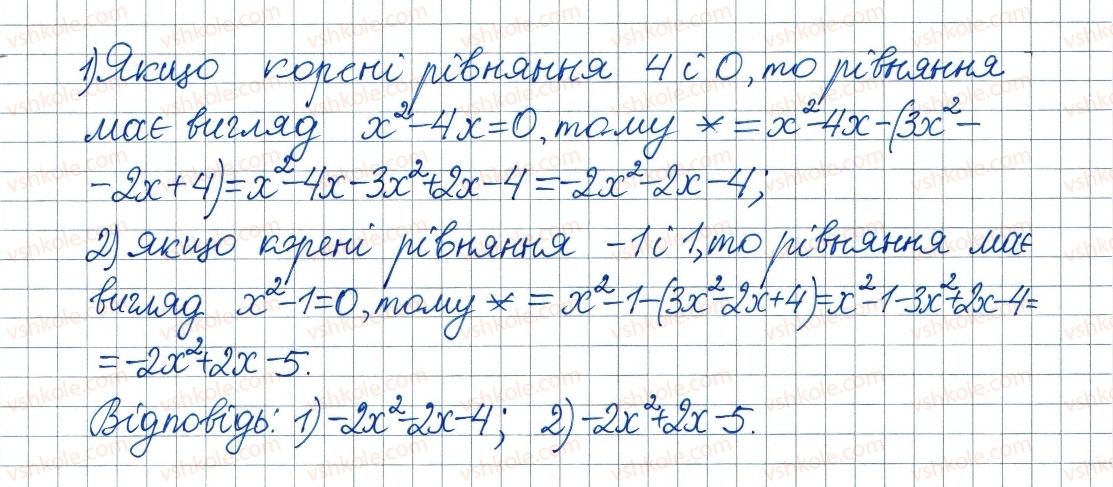 1) Якщо корені рівняння 4 і 0, то рівняння
має вигляд x²-4x=0, тому * = x²-4x-(3x²-
-2x+4)=x²-4x-3x²+2x-4=-2x²-2x-4;
2) якщо корені рівняння -1 і 1, то рівняння має
вигляд x²-1=0, тому * = x²-1-(3x²-2x+4)=x²-1-3x²+2x-4=
=-2x²+2x-5.
Відповідь: 1) -2x²-2x-4; 2) -2x²+2x-5.